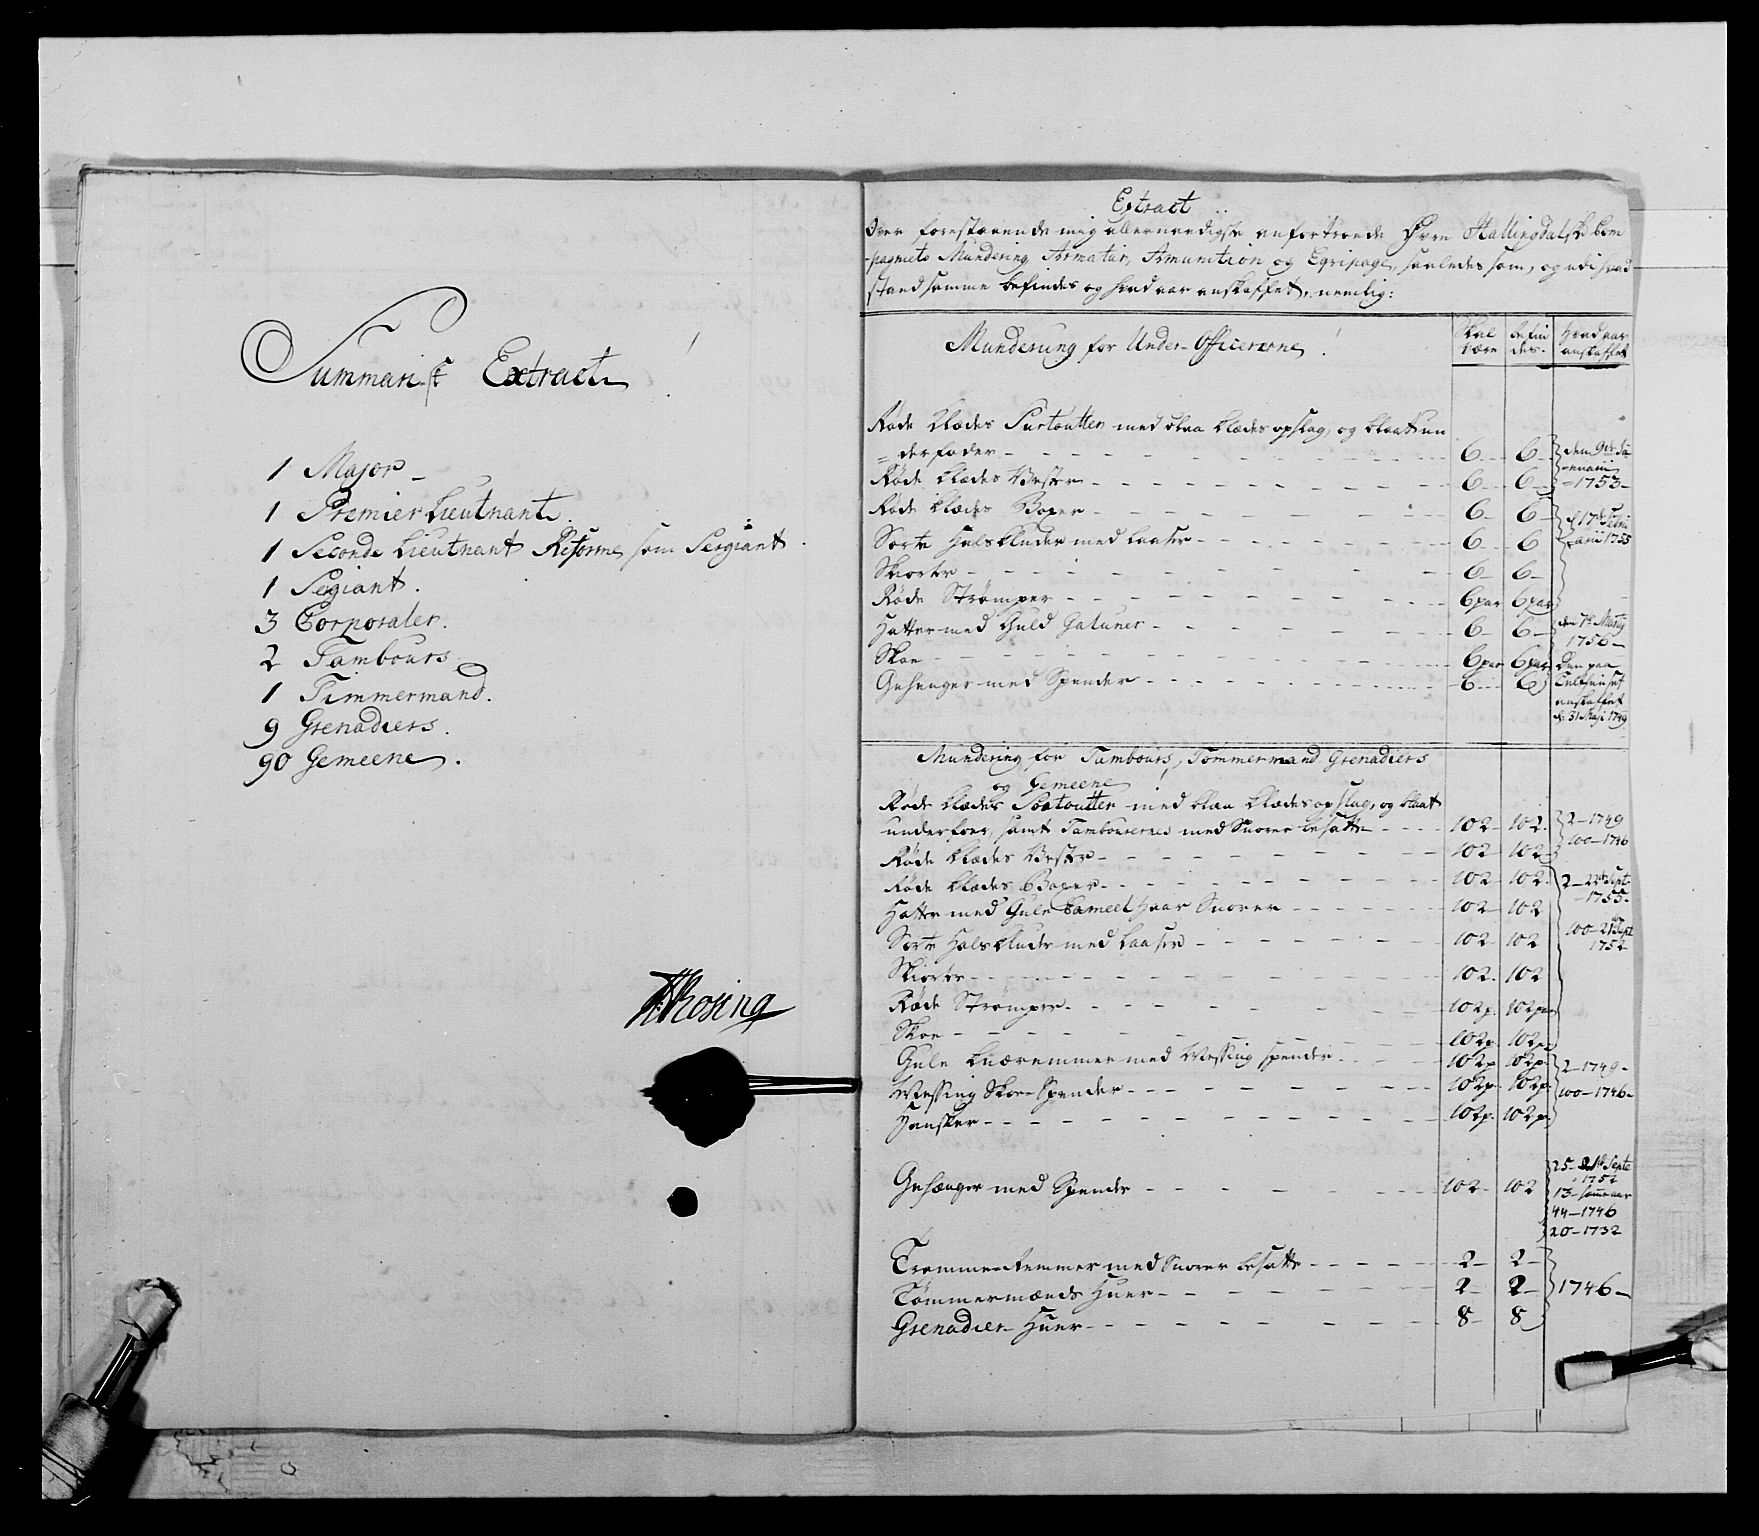 Summarisk Extract
1 Major
1 Premier Lieutnant
1 Seconde Lieutnant Reforme som Sergiant
1 Segiant.
3 Corporaler.
2 Tambours
1 Timmermand.
9 Grenadiers.
90 Gemeene.
Rosing
Extract
Over forestaaende mig allernaadigst anfortroede Øvre Hallingdalske Com
pagniets Mundering, Armatur, Amunition og Eqvipage, saaledes som, og udi hvad
stand samme befindes og hvad aar anskaffet, nemlig:
Mundering for Under-Officererne
Skal være
Befin des.
Hvad aar anskaffet
Røde Klædes Surtoutter med blaa Klædes opslag, og blaat un
=derfoder - 6 - 6
Røde Klædes Vester - 6 - 6
den 9de Ja
nuarii
1753
Røde Klædes Boxer - 6 - 6
Sorte Halskluder med Laaser - 6 - 6
d 17de Febru
arii 1755
Skiorter - 6 - 6
Røde Strømper - 6 par 6 par
Hatter med Guld Galuner - 6 - 6
den 7de Martij
1756
Skoe - 6 par 6 par
Gehenger med Spender - 6 - 6
anskaffet
d: 31 Maji 1749
Mundering for Tambours, Tømmermand Grenadiers
og Gemeene
Røde Klædes Sortoutter med blaa Klædes opslag, og blaat
underfoer, samt Tambourernes med Snorer besatte - 102 - 102
2 - 1749
100 - 1746
Røde Klædes Vester - 102 - 102
Røde Klædes Boxer - 102 - 102
2 - 22de Sept
1755
Hatter med Gule Cameel Haar Snorer - 102 - 102
Sorte Halskluder med Laaser - 102 - 102
100 - 21de Sept
1752
Skiorter - 102 - 102
Røde Strømper - 102 p. 102 par
Skoe - 102 p. 102 pa
Gule Knæremmer med Messing Spender - 102 p 102 p.
2 - 1749
Messing Skoe-Spender - 102 p. 102 p.
100 - 1746
Hansker - 102 p. 102 p.
Gehænger med Spender - 102 - 102
25 - 21de Septe
1752
13 - samme aar
44 - 1746
20 - 1732
Tromme-Remmer med Snorer besatte - 2 - 2
Tømmermænds Huer - 2 - 2
1746
Grenadier-Huer - 8 - 8